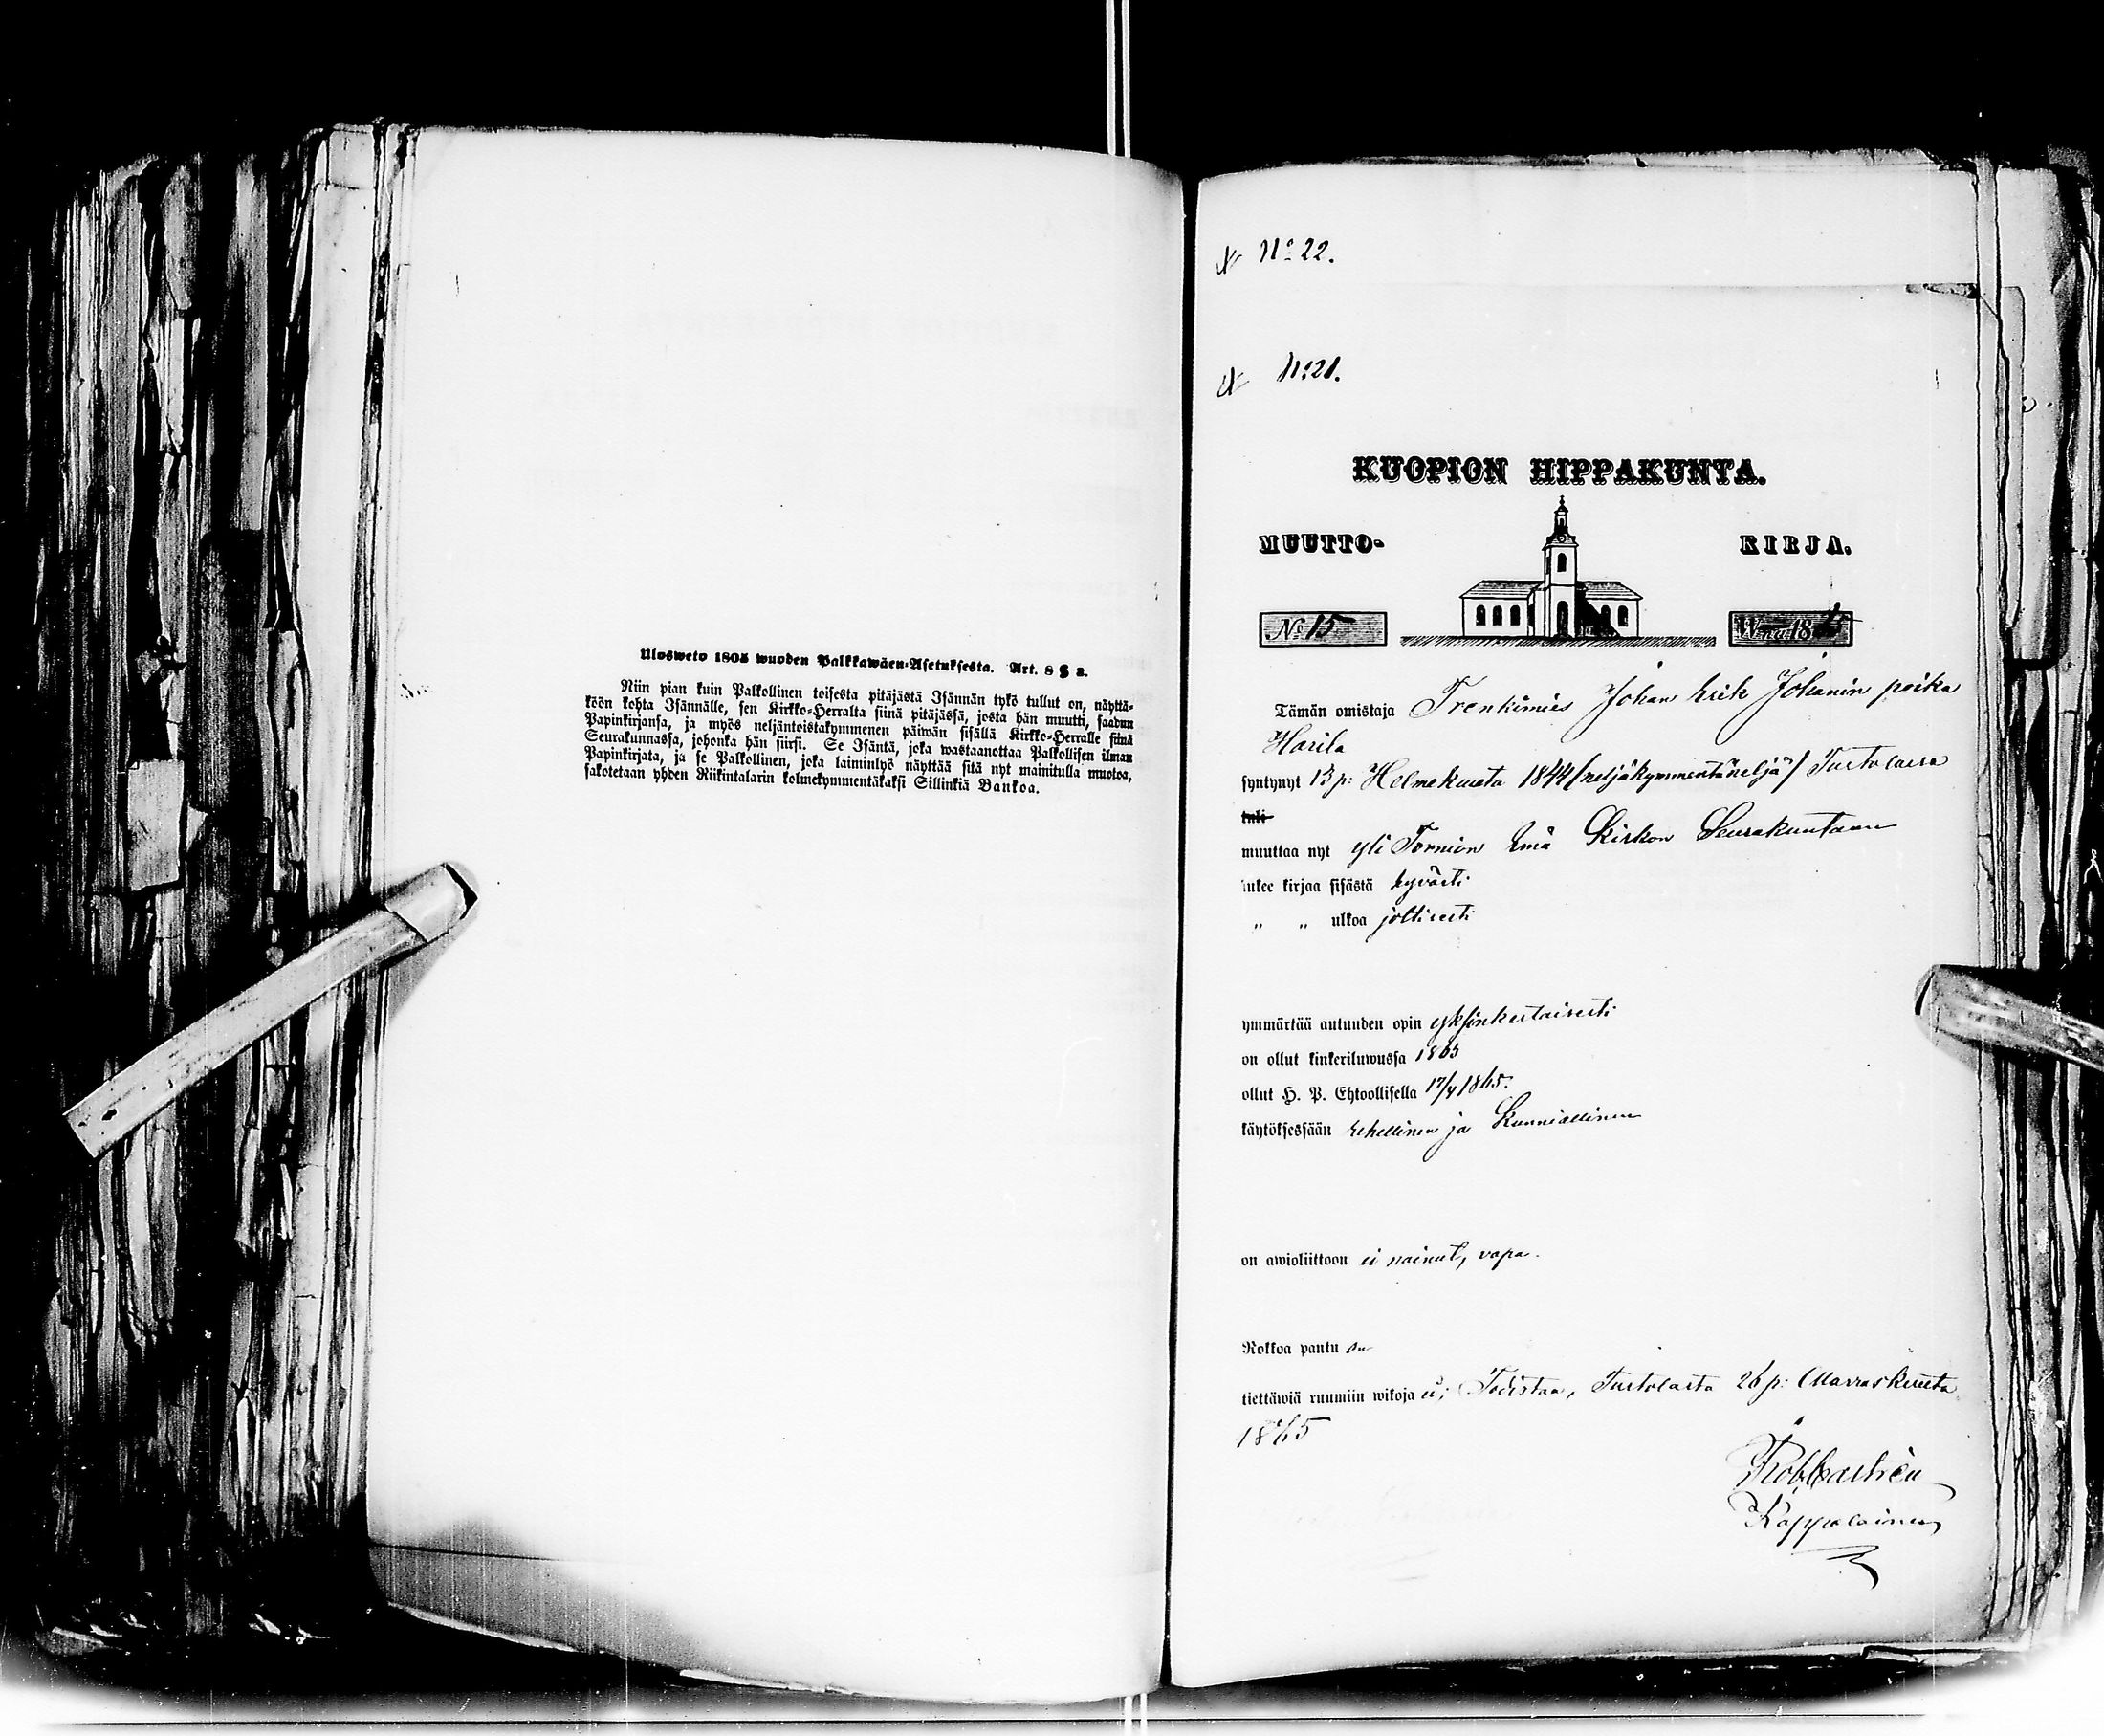 Ulosweto 1805 wuoden Palkkawäen-Asetuksesta. Art. 8 § 2.
Niin pian kuin Palkollinen toisesta pitäjästä Isännän tykö tullut on, näyttä-
köön kohta Isännälle, sen Kirkko-Herralta siinä pitäjässä, josta hän muutti, saadun
Papinkirjansa, ja myös neljäntoistakymmenen päiwän sisällä Kirkko-Herralle siinä
Seurakunnassa, johonka hän siirsi. Se Isäntä, joka wastaanottaa Palkollisen ilman
Papinkirjata, ja se Palkollinen, joka laiminlyö näyttää sitä nyt mainitulla muotoa,
sakotetaan yhden Riikintalarin kolmekymmentäkaksi Sillinkiä Bankoa.
No 22.
No 21.
KUOPION HIPPAKUNTA.
MUUTTO- KIRJA.
No 15 W-na 18
Tämän omistaja Trenkimies Johan Erik Johanin poika
Harila
syntynyt 13 p: Helmekuuta 1844 /neljäkymmentäneljä/ Turtolassa
tuli
muuttaa nyt yli Tornion Emä Kirkon Seurakuntaan
lukee kirjaa sisästä hyvästi
" " ulkoa joltisesti
ymmärtää autuuden opin yksinkertaisesti
on ollut kinkeriluwussa 1865
ollut H. P. Ehtoollisella 17/4 1865.
käytöksessään rehellinen ja Kunniallinen
on awioliittoon ei nainut, vapa.
Rokkoa pantu on
tiettäwiä ruumiin wikoja ei; Todistaa, Turtolasta 26 p: Marraskuuta
1865
Kappalainen